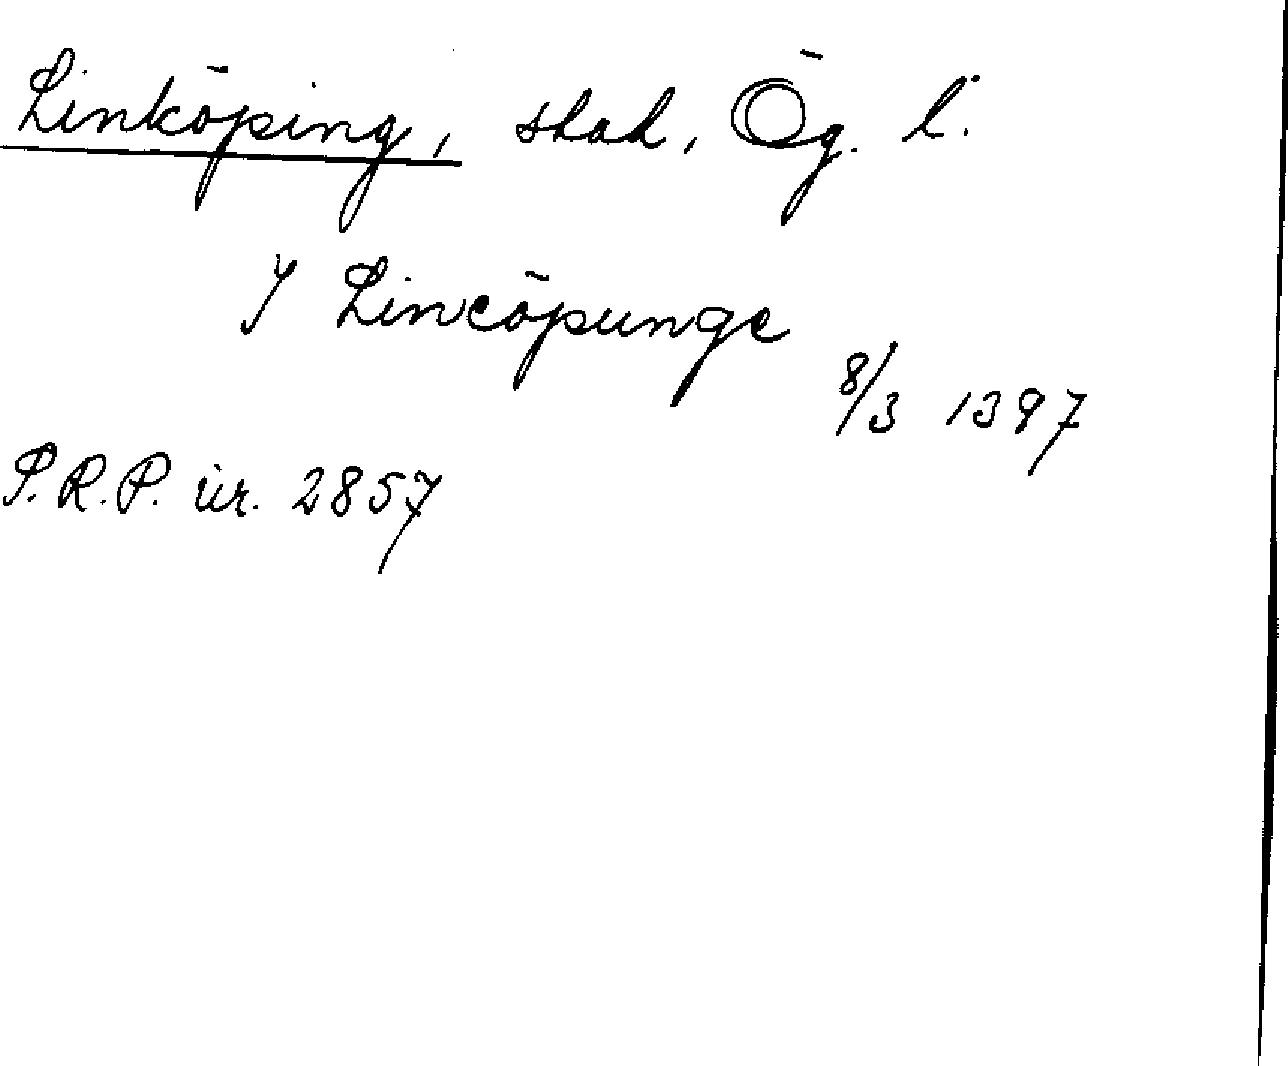 Linköping, stad, Ög. l.
J Lincöpunge
8/3 1397
S.R.P. nr. 2857